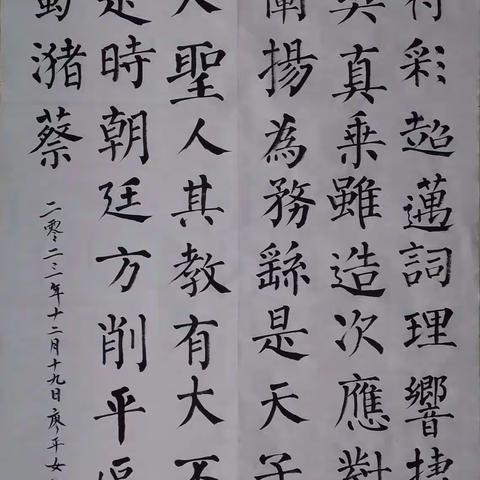 符彩超邁詞理響捷
契真乘雖造次應對
闡揚為務繇是天子
大聖人其教有大不
是時朝廷方削平區
蜀潴蔡
二零二三年十二月十九日